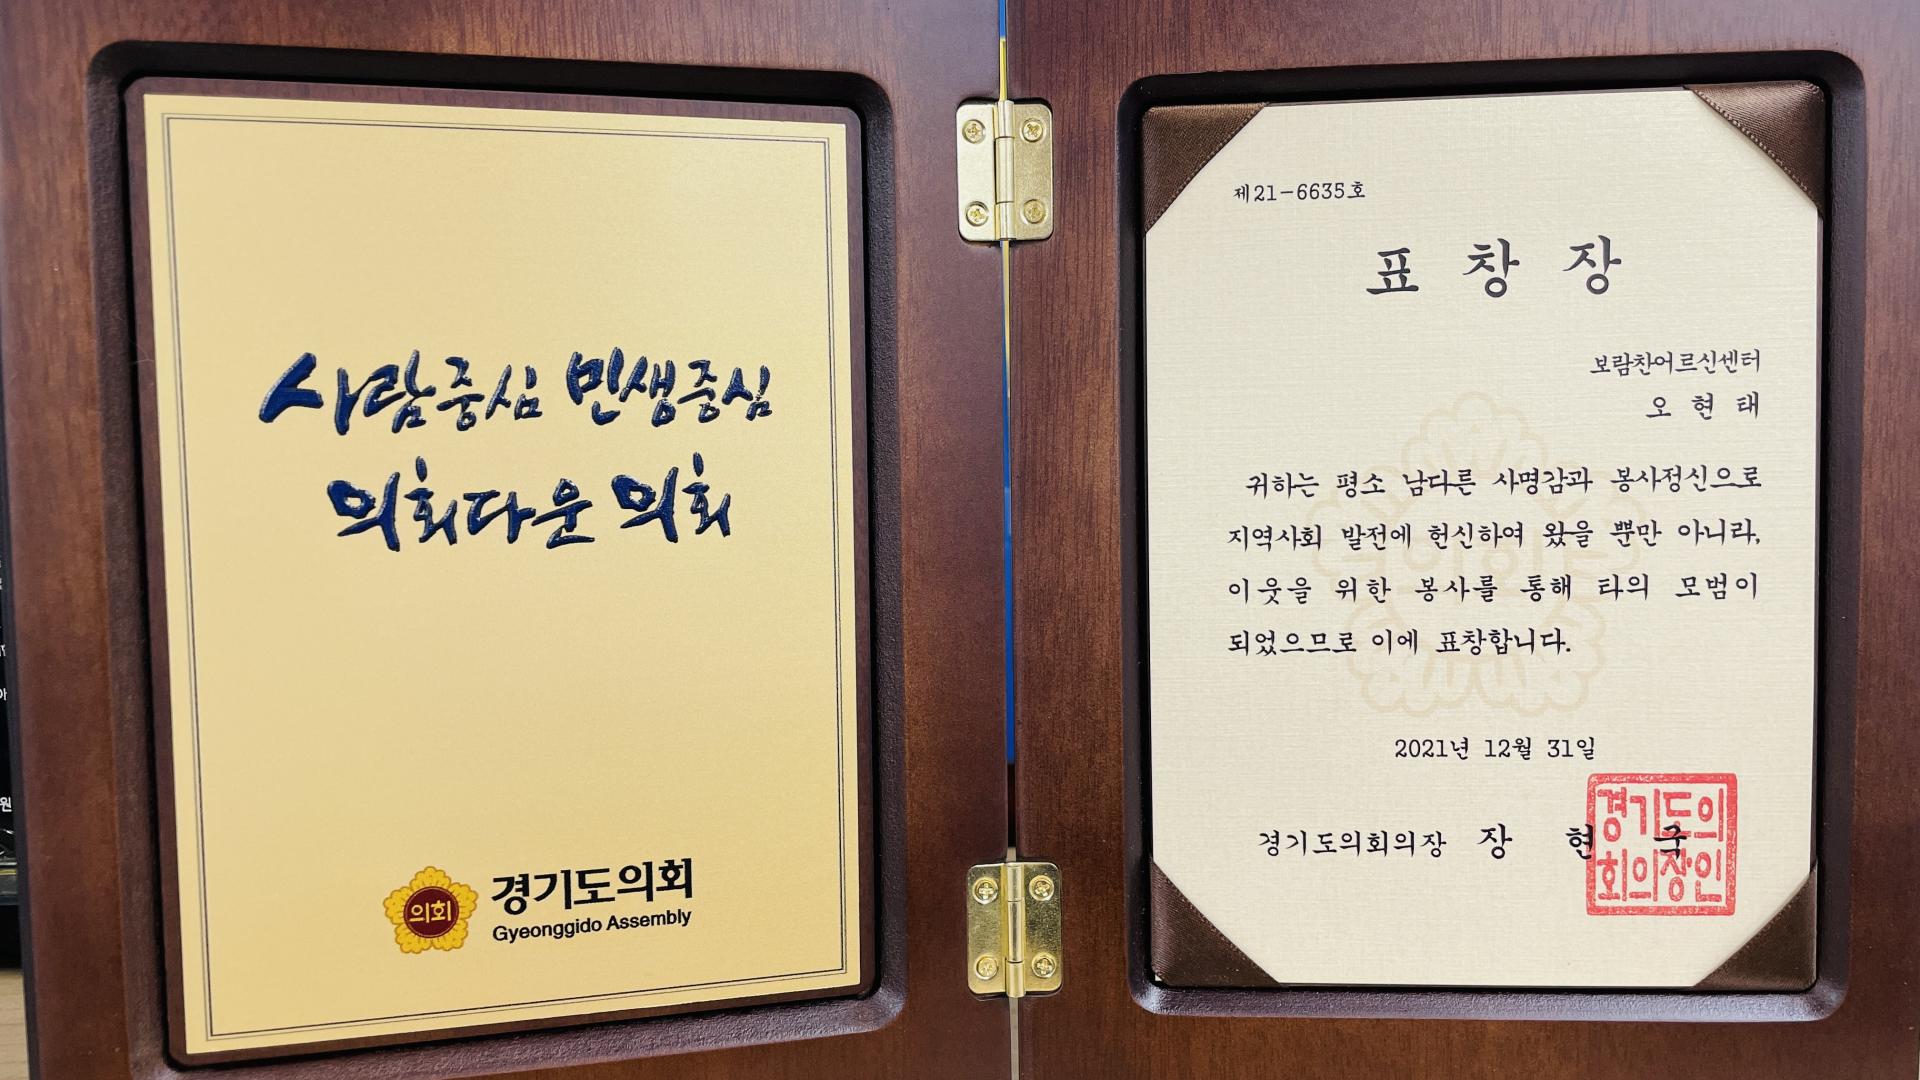 사람중심 민생중심
의회다운 의회
의회
경기도의회
Gyeonggido Assembly
제21-6635호
표 창 장
보람찬어르신센터
오 현 태
귀하는 평소 남다른 사명감과 봉사정신으로
지역사회 발전에 헌신하여 왔을 뿐만 아니라,
이웃을 위한 봉사를 통해 타의 모범이
되었으므로 이에 표창합니다.
2021년 12월 31일
경기도의회의장 장 현 국
경기도의
회의장인
원